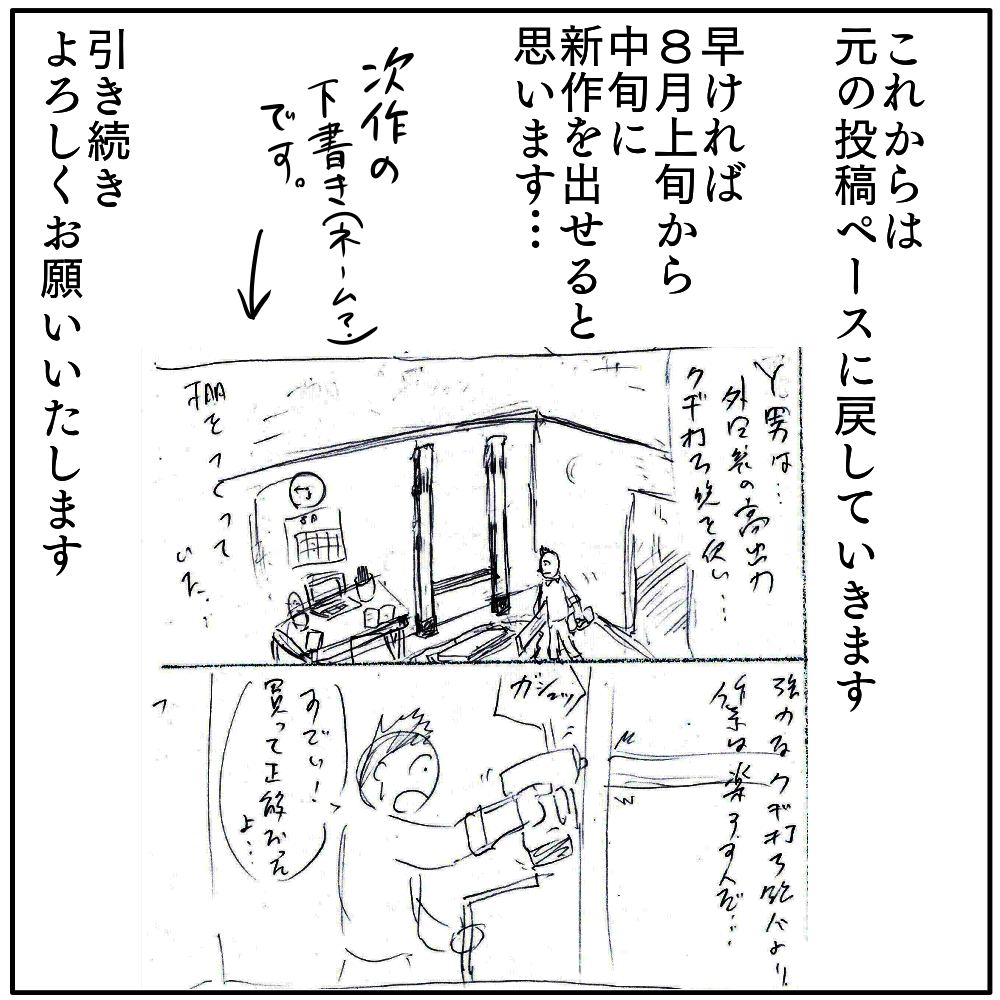 これからは
元の投稿ペースに戻していきます
早ければ
8月上旬から
中旬に
新作を出せると
思います…
次作の
下書き(ネーム?)
です。
引き続き
よろしくお願いいたします
Y男は…
外国製の高出力
クギ打ち銃を使い…
棚をつくって
いた…
8月
強力なクギ打ち銃により
作業は楽々すんだ…
ガシュッ
すでい!
買って正解だった
よ…